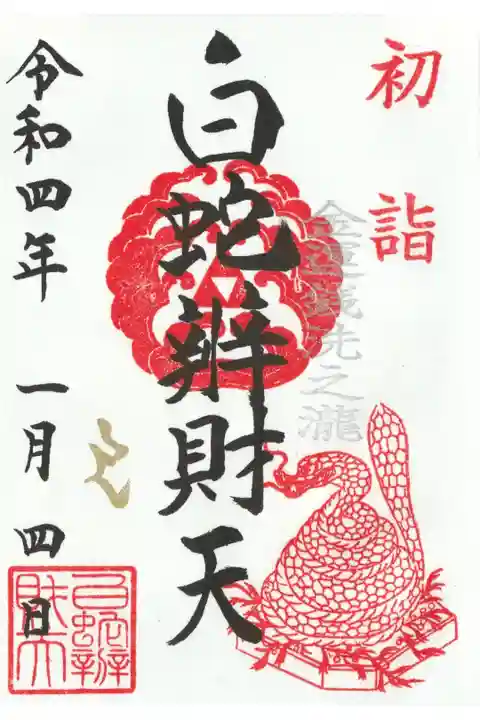 初詣
金運銭洗之瀧
白蛇辨財天
令和四年 一月 四日
白蛇辨財天